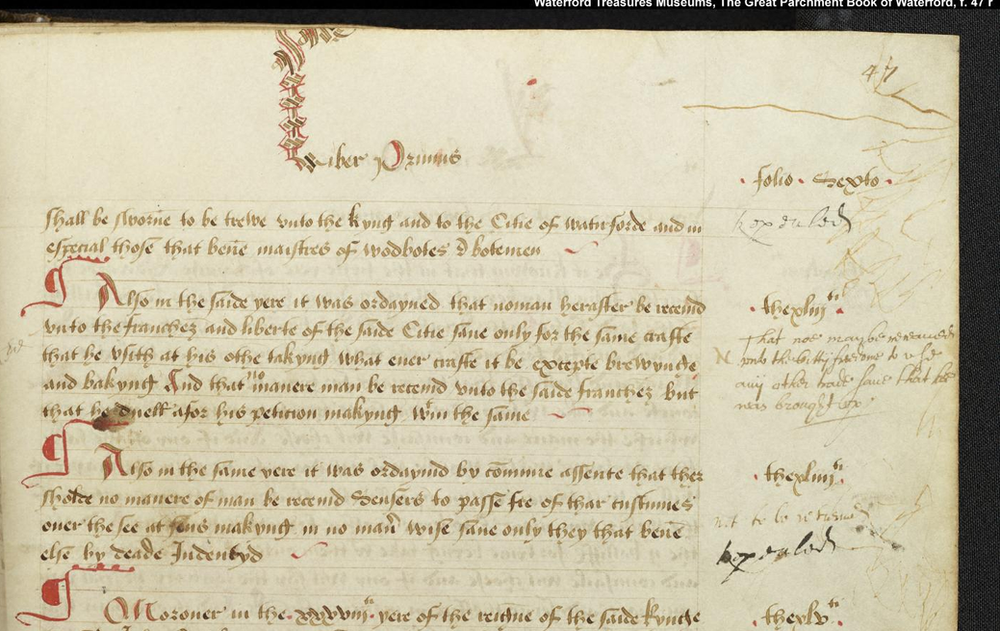 Waterford Treasures Museums, The Great Parchment Book of Waterford, f. 47 r
47
Liber Primus
folio Sexto
shall be sworne to be trewe vnto the kyng and to the Citie of waterforde and in
especial those that bene maistres of wodbotes & botemen
Repealed
Also in the saide yere it was ordayned that noman herafter be receuid
vnto the franchez and liberte of the saide Citie saue only for the same crafte
that he vsith at his othe takyng what euer crafte it be excepte brewynge
and bakyng And that no manere man be receuid vnto the saide franchez but
that he duell afor his petition makyng wtin the same
thexliijti
That non may be receaued
vnto the citty fredome to vse
any other trade saue that he
was brought vp
Also in the same yere it was ordaynid by comune assente that ther
sholde no manere of man be receuid Sensers to passe fre of thar custumes
ouer the see at makyng in no man wise saue only they that bene
else by deade Indentyd
thexliiijti
not to be
Repealed
Moreuer in the xxxviijti yere of the reigne of the saide Kynge
thexlvti